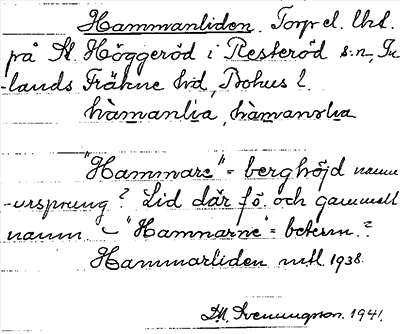 Hammanliden. Torp el. lht.
på St. Höggeröd i Resteröd s:n, In
-lands Fräkne hd, Bohus l.
hàmanlia, hàmanslia
"Hammare" = berghöjd namn
-ursprung? Lid där fö. och gammalt
namn "Hamnarne" = beterm.?
Hammarliden mtl 1938.
D.M. Svenningson. 1941.